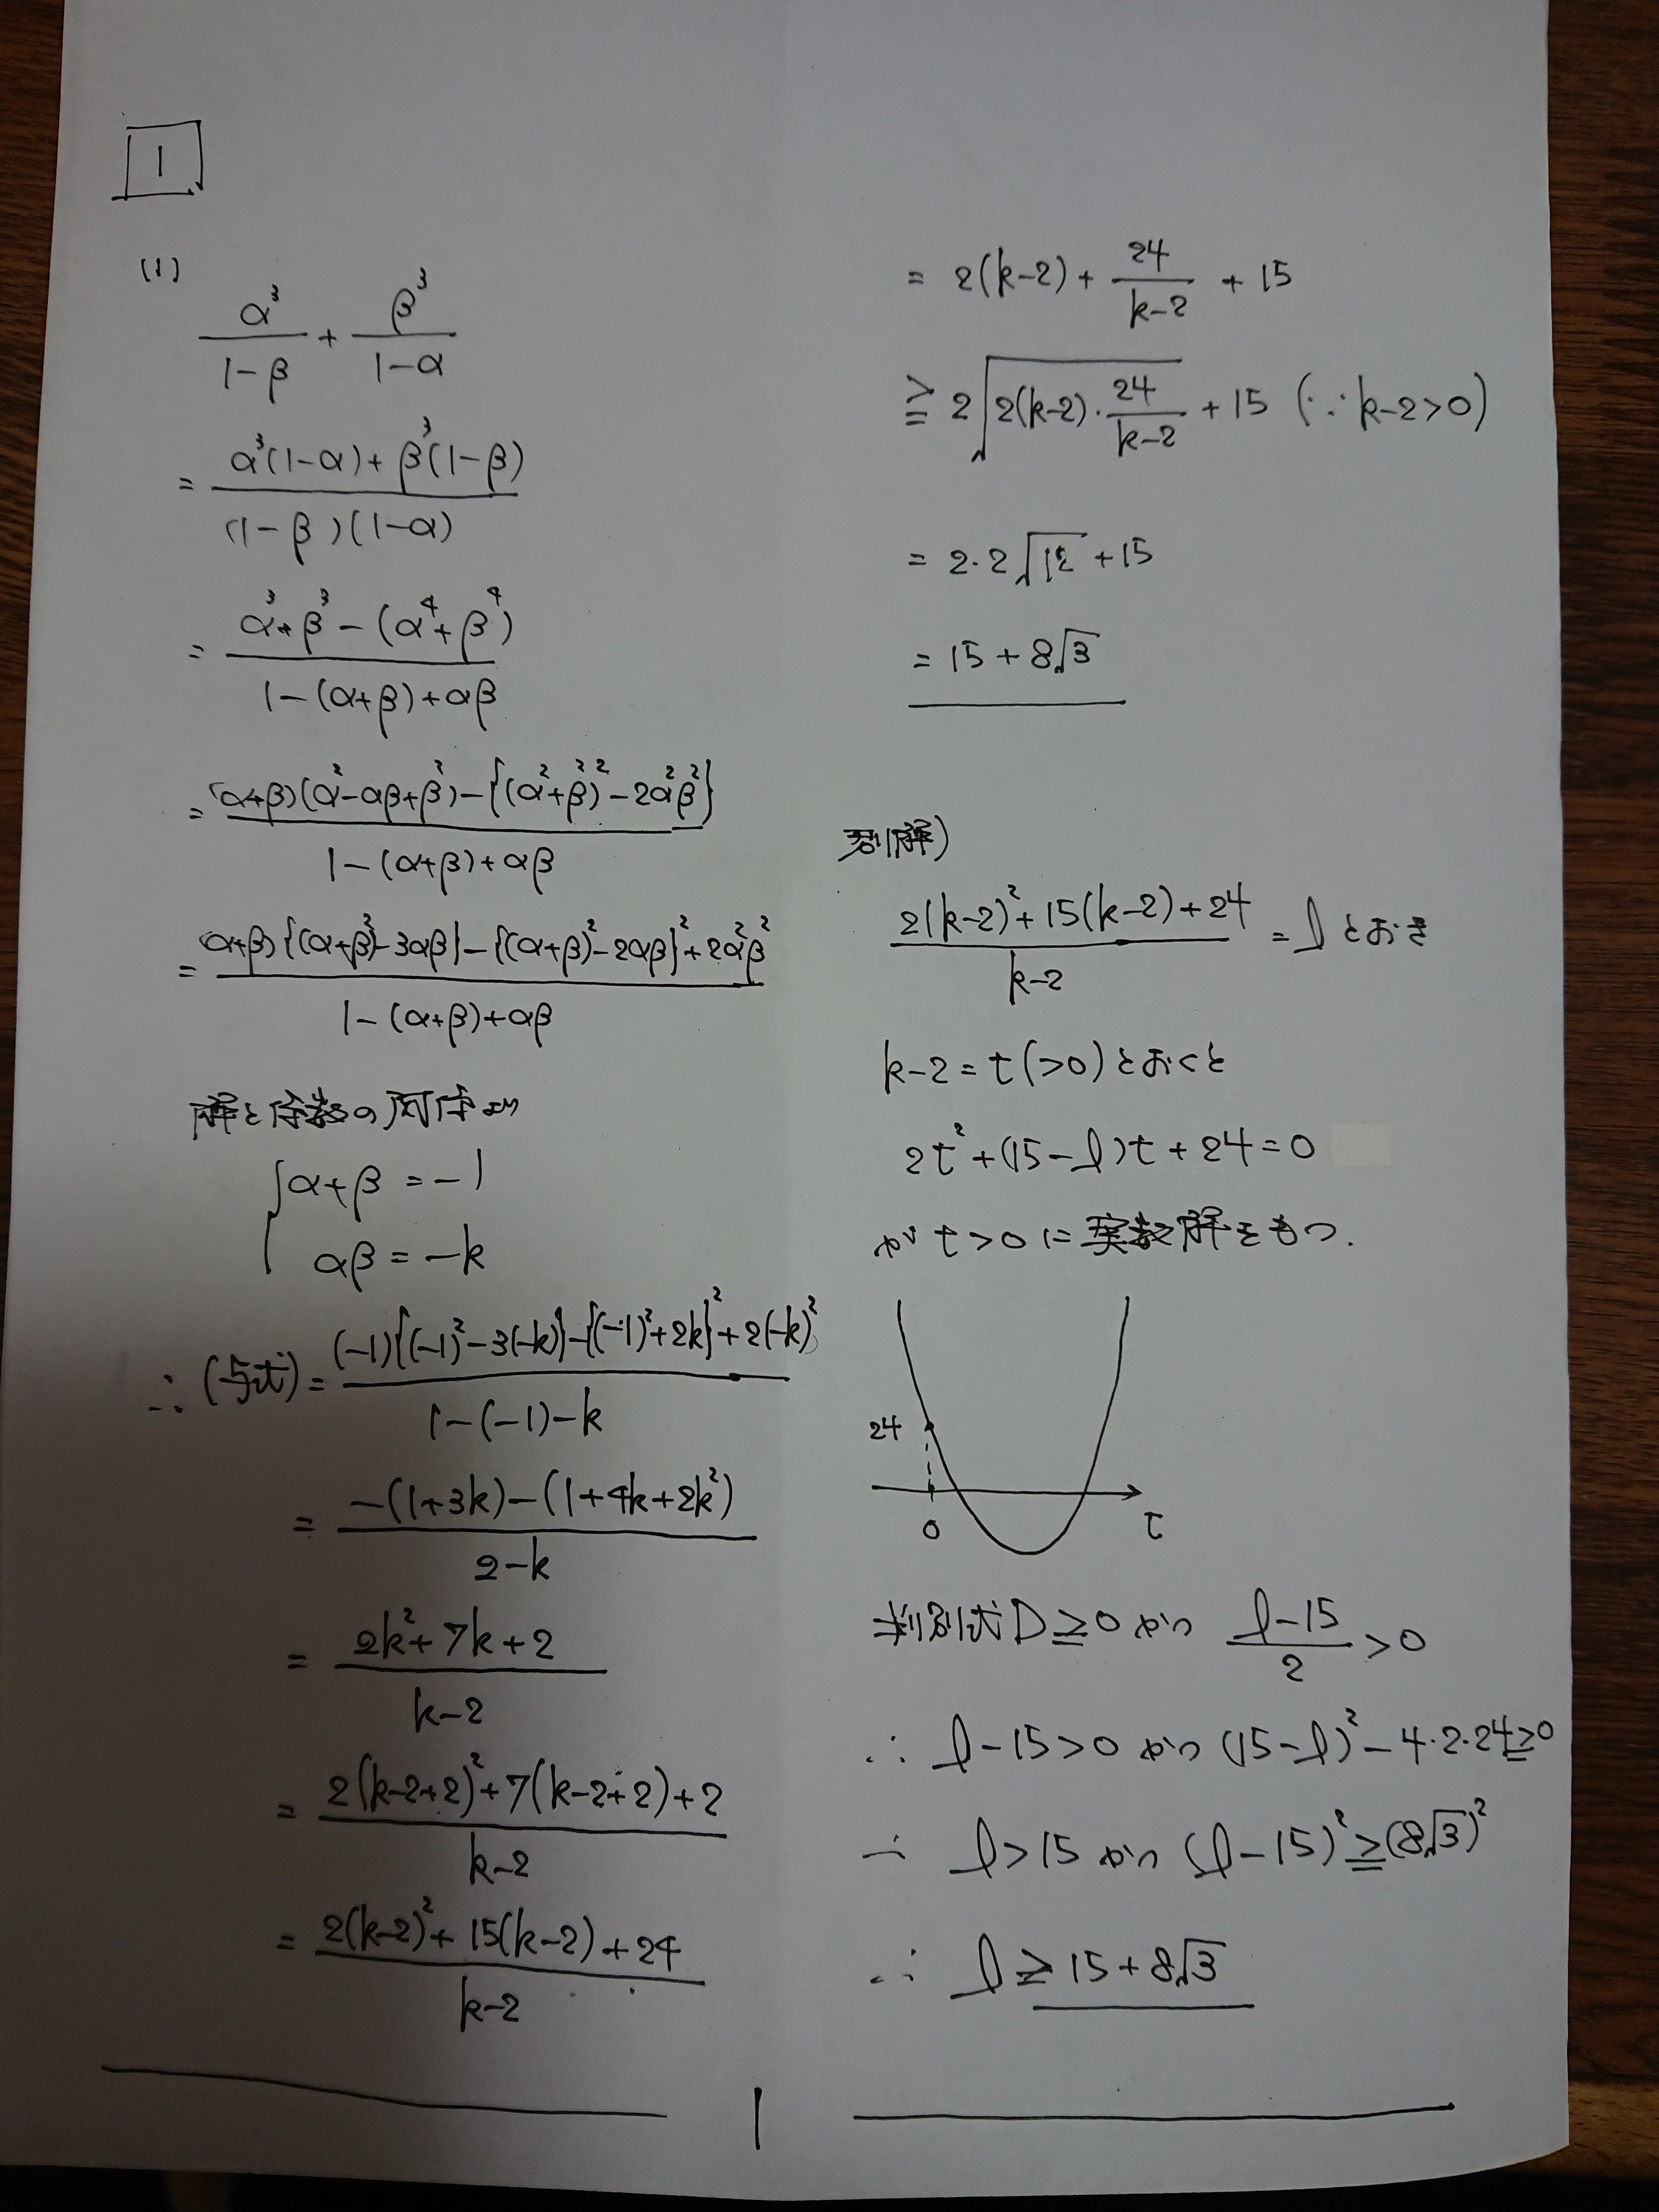 1
(1)
α³/(1-β) + β³/(1-α)
= (α³(1-α)+β³(1-β))/((1-β)(1-α))
= (α³+β³-(α⁴+β⁴))/(1-(α+β)+αβ)
= ((α+β)(α²-αβ+β²)-{(α²+β²)²-2α²β²})/(1-(α+β)+αβ)
= ((α+β){(α+β)²-3αβ}-{(α+β)²-2αβ}²+2α²β²)/(1-(α+β)+αβ)
解と係数の関係より
{α+β = -1
αβ = -k
∴ (与式) = ((-1){(-1)²-3(-k)}-{(-1)²+2k}²+2(-k)²)/(1-(-1)-k)
= (-(1+3k)-(1+4k+2k²))/(2-k)
= (2k²+7k+2)/(k-2)
= (2(k-2+2)²+7(k-2+2)+2)/(k-2)
= (2(k-2)²+15(k-2)+24)/(k-2)
= 2(k-2) + 24/(k-2) + 15
≧ 2√(2(k-2)・24/(k-2)) + 15 (∵ k-2>0)
= 2・2√12 + 15
= 15 + 8√3
別解)
(2(k-2)²+15(k-2)+24)/(k-2) = l とおき
k-2 = t (>0) とおくと
2t²+(15-l)t+24=0
が t>0 に実数解をもつ.
24
0
t
判別式 D≧0 かつ (l-15)/2 > 0
∴ l-15>0 かつ (15-l)²-4・2・24≧0
∴ l>15 かつ (l-15)²≧(8√3)²
∴ l≧15+8√3
1